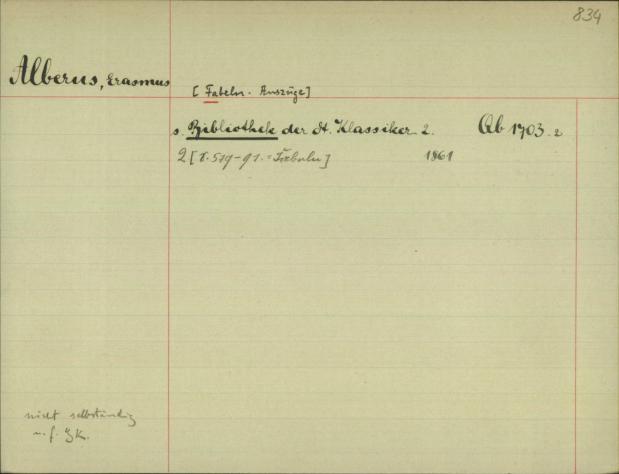 834
Alberus, Erasmus
[Fabeln. Auszüge]
s. Bibliothek der dt. Klassiker 2. Ab 1703 2
2 [S. 519-91. = Fabeln] 1861
nicht selbständig
n. f. GK.